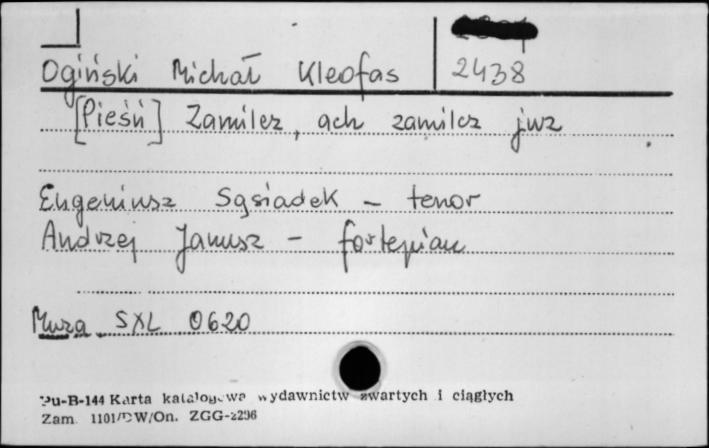 Ogiński Michał Kleofas 2438
[Pieśń] Zamilcz, ach zamilcz już
Eugeniusz Sąsiadek - tenor
Andrzej Janusz - fortepian
Muza SXL 0620
Pu-B-144 Karta katalogowa wydawnictw zwartych i ciągłych
Zam. 1101/DW/On. ZGG-2296